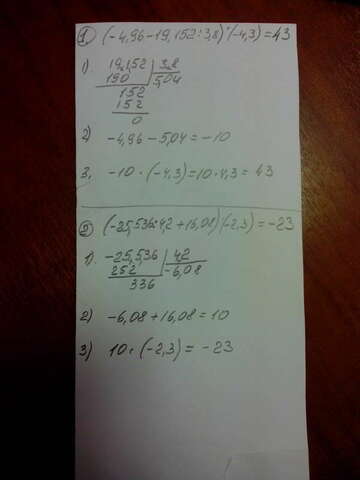 1 (-4,96-19,152:3,8)·(-4,3)=43
1). 19,152 | 3,8
190 | 5,04
152
152
0
2) -4,96-5,04=-10
3, -10·(-4,3)=10·4,3=43
2 (-25,536:4,2+16,08)(-2,3)=-23
1) -25,536 | 4,2
252 | -6,08
336
2) -6,08+16,08=10
3) 10·(-2,3)=-23